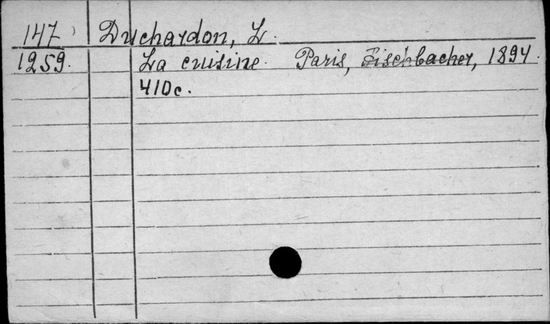 147 Duchardon, L.
1259. La cuisine. Paris, Fischbacher, 1894.
410c.